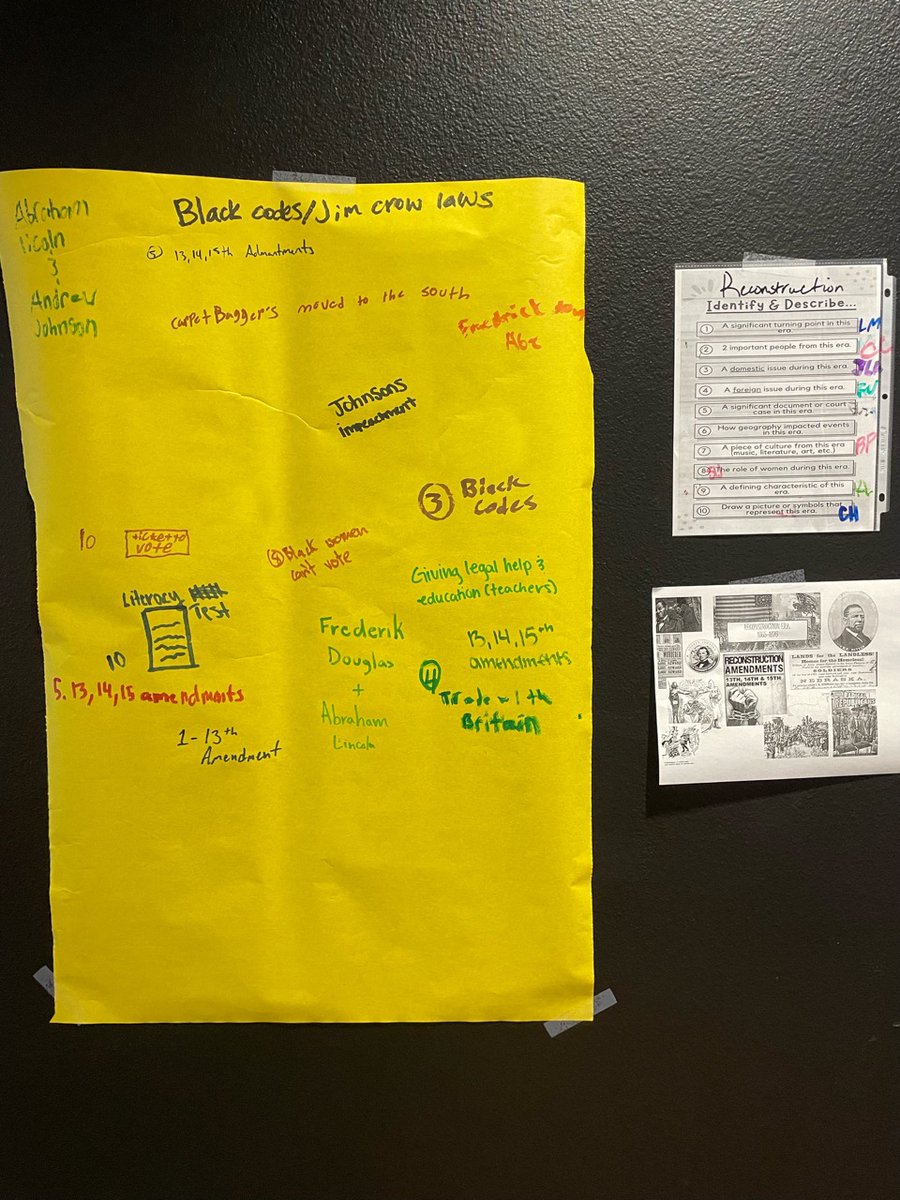 Abraham
licoln
&
Andrew
Johnson
Black codes/Jim crow laws
⑤ 13,14,15th Admantments
carpetBagger's moved to the south
Frederick
Abe
Johnsons
impeachment
③ Black
codes
10
ticket to
vote
⑧ Black women
can't vote
Literacy
Test
10
Giving legal help &
education (teachers)
Frederik
Douglas
+
Abraham
Lincoln
13,14,15th
amendments
④
Trade with
Britain
5. 13,14,15 amendments
1-13th
Amendment
Reconstruction
Identify & Describe...
1 A significant turning point in this
era.
LM
2 2 important people from this era.
CL
3 A domestic issue during this era.
4 A foreign issue during this era.
5 A significant document or court
case in this era.
6 How geography impacted events
in this era.
7 A piece of culture from this era
(music, literature, art, etc.)
BP
8 The role of women during this era.
9 A defining characteristic of this
era.
10 Draw a picture or symbols that
represent this era.
CH
RECONSTRUCTION ERA
RECONSTRUCTION
AMENDMENTS
13TH, 14TH & 15TH
AMENDMENTS
LANDS for the LANDLESS!
Homes for the Homeless!
SOLDIERS
NEBRASKA.